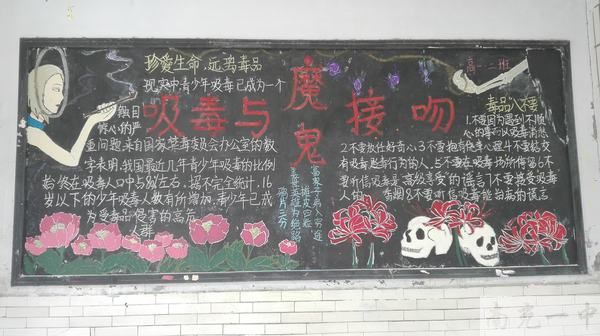 珍爱生命,远离毒品
高一二班
现实中青少年吸毒已成为一个
独目
惊人的严
重问题,来自国家禁毒委员会办公室的数
字表明,我国最近几年青少年吸毒的比例
始终在吸毒人口中占
左右,据不完全统计,16
岁以下的少年吸毒人数有所增加,青少年已成
为受毒品侵害的高危
人群
吸毒与魔鬼接吻
毒品人
1不要因为遇到不顺
心的事而以吸毒消愁
2不要放任好奇心3不要抱有侥幸心理4不要结交
有吸毒贩毒行为的人,5不要在吸毒场所停留6不
要听信吸毒是高级享受的谣言7不要接受吸毒
人的
8不要听信吸毒能治病的谣言
南充一中